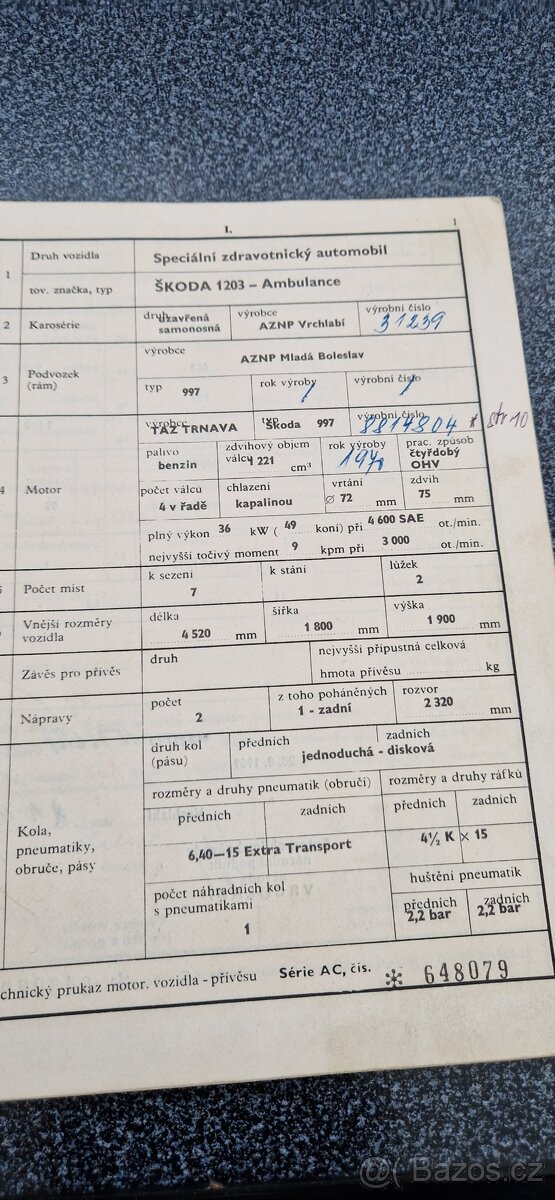 I. 1
1 Druh vozidla Speciální zdravotnický automobil
tov. značka, typ ŠKODA 1203 – Ambulance
2 Karosérie druh uzavřená samonosná výrobce AZNP Vrchlabí výrobní číslo 31239
3 Podvozek (rám) výrobce AZNP Mladá Boleslav
typ 997 rok výroby / výrobní číslo /
4 Motor výrobce TAZ TRNAVA typ Škoda 997 výrobní číslo 8814804 * str 10
palivo benzín zdvihový objem válců 1 221 cm³ rok výroby 1970 prac. způsob čtyřdobý OHV
počet válcu 4 v řadě chlazení kapalinou vrtání ⌀ 72 mm zdvih 75 mm
plný výkon 36 kW ( 49 koní) při 4 600 SAE ot./min.
nejvyšší točivý moment 9 kpm při 3 000 ot./min.
5 Počet míst k sezení 7 k stání lůžek 2
Vnější rozměry vozidla délka 4 520 mm šířka 1 800 mm výška 1 900 mm
Závěs pro přívěs druh nejvyšší přípustná celková hmota přívěsu kg
Nápravy počet 2 z toho poháněných 1 - zadní rozvor 2 320 mm
Kola, pneumatiky, obruče, pásy
druh kol (pásu) předních zadních jednoduchá - disková
rozměry a druhy pneumatik (obručí) rozměry a druhy ráfků
předních zadních předních zadních
6,40—15 Extra Transport 4½ K × 15
počet náhradních kol s pneumatikami 1 huštění pneumatik
předních 2,2 bar zadních 2,2 bar
chnický prukaz motor. vozidla - přívěsu Série AC, čís. * 648079
@ Bazos.cz